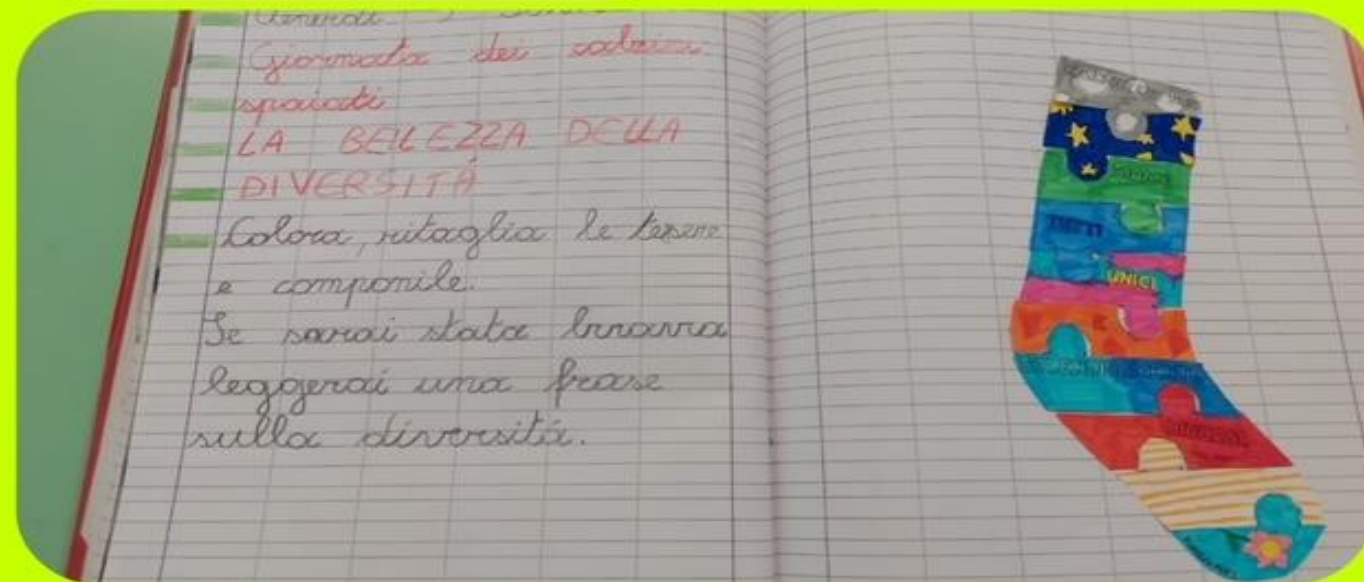 Giornata dei calzini
spaiati
LA BELLEZZA DELLA
DIVERSITÀ
Colora, ritaglia le tessere
e componile.
Se sarai stata brava
leggerai una frase
sulla diversità.
TUTTI
UNICI